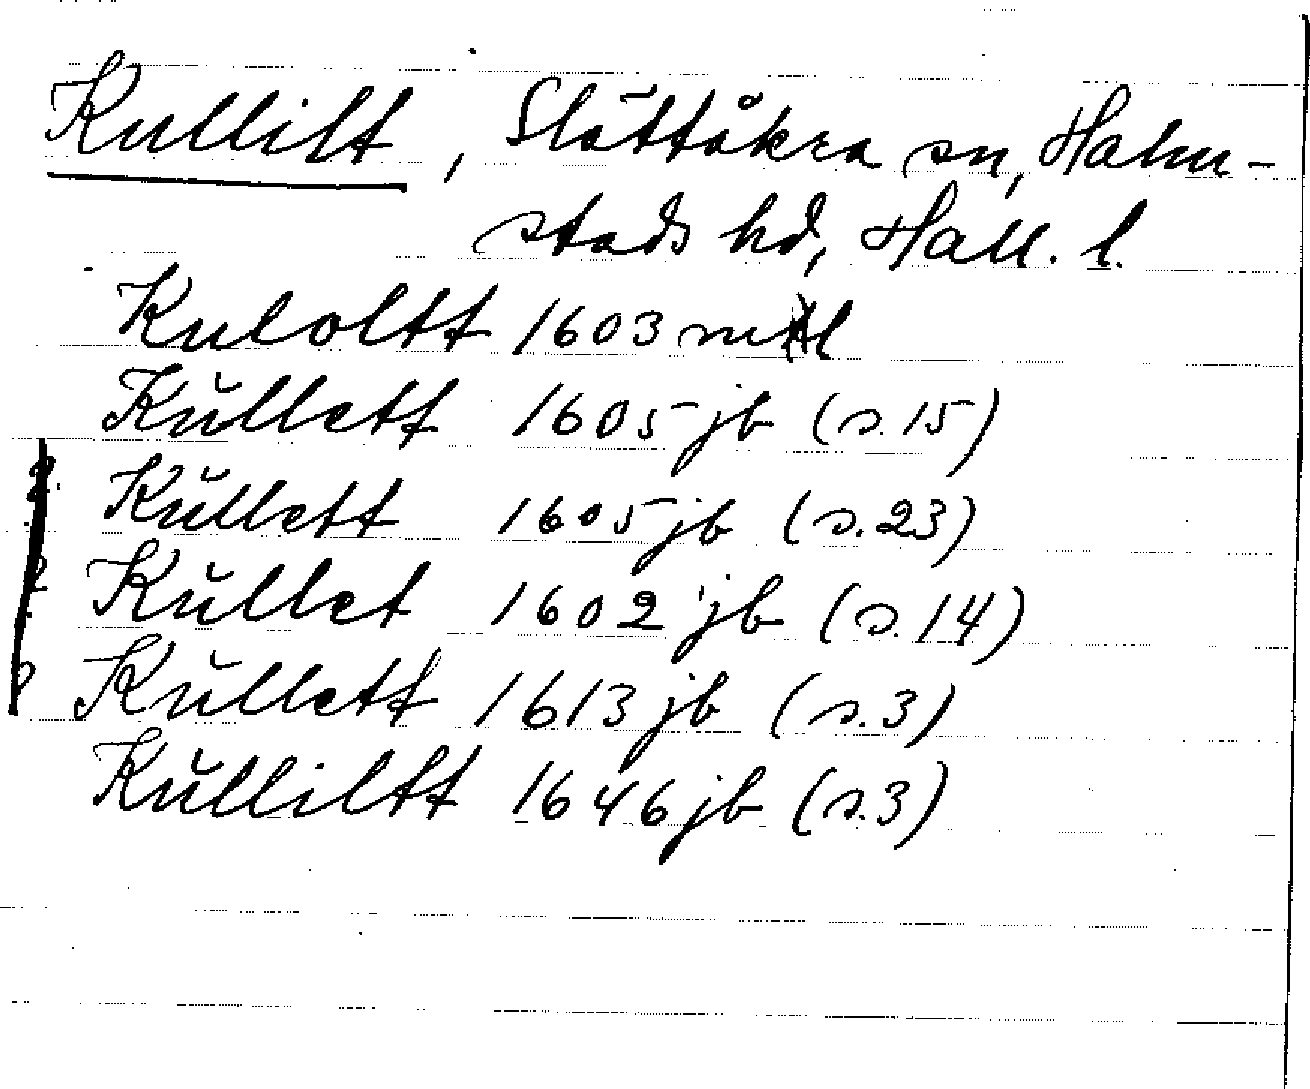 Kullilt, Slättåkra sn, Halm-
stads hd, Hall. l.
Kuloltt 1603 mtl
Kŭllett 1605 jb (s. 15)
Kŭllett 1605 jb (s. 23)
Kŭllet 1602 jb (s. 14)
Kŭllett 1613 jb (s. 3)
Kŭlliltt 1646 jb (s. 3)